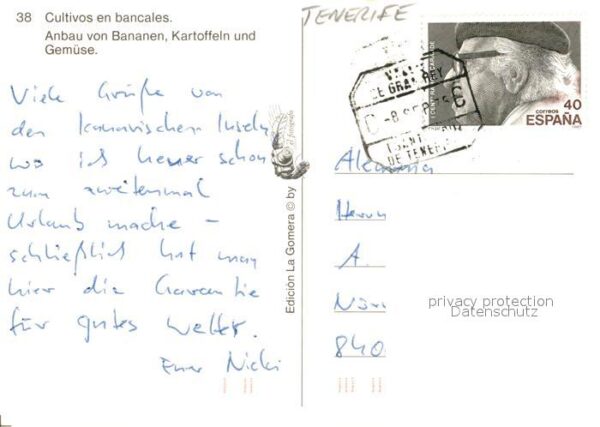 38 Cultivos en bancales.
Anbau von Bananen, Kartoffeln und
Gemüse.
TENERIFE
VALLE
DE GRAN REY
DE TENERIFE
CORREOS
40
ESPAÑA
Viele Grüße von
den Kanarischen Inseln,
wo ich heuer schon
zum zweitenmal
Urlaub mache –
schließlich hat man
hier die Garantie
für gutes Wetter.
Euer Nicki
Edición La Gomera © by
Alemania
Herrn
A.
Nür
840
privacy protection
Datenschutz